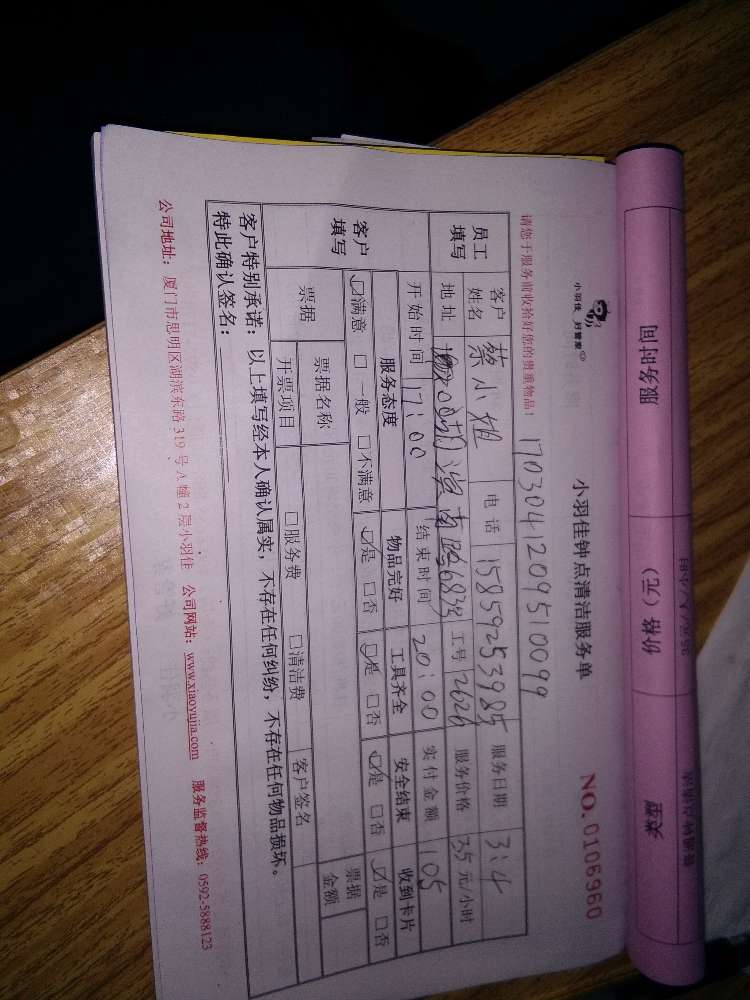 服务时间
价格（元）
小羽佳 好管家
小羽佳钟点清洁服务单
NO.0106960
请您于服务前收拾好您的贵重物品！
170304120951 0099
员工填写
客户姓名 蔡小姐 电话 15859253985 服务日期 3:4
地址 湖滨南路 工号 2626 服务价格 35元/小时
客户填写
开始时间 17:00 结束时间 20:00 实付金额 105
服务态度 物品完好 工具齐全 安全结束 收到卡片
☑满意 □一般 □不满意 ☑是 □否 ☑是 □否 ☑是 □否 ☑是 □否
票据 票据名称 票据金额
开票项目 □服务费 □清洁费 客户签名
客户特别承诺：以上填写经本人确认属实，不存在任何纠纷，不存在任何物品损坏。
特此确认签名：
公司地址：厦门市思明区湖滨东路319号A幢2层小羽佳 公司网站：www.xiaoyujia.com 服务监督热线：0592-5888123